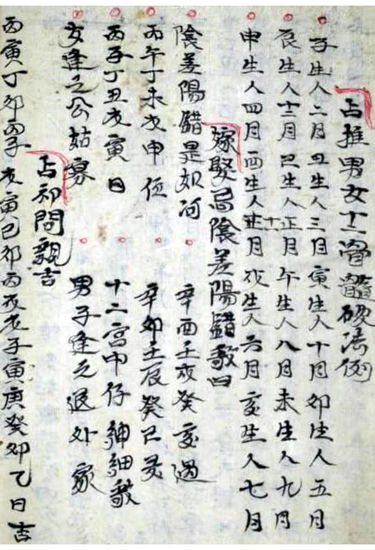 占推男女十二骨髓破法例
子生人二月丑生人三月寅生人十月卯生人五月
辰生人十二月巳生人正月午生人八月未生人九月
申生人四月酉生人十一月戌生人六月亥生人七月
嫁娶忌陰差陽錯歌曰
陰差陽錯是如何 辛酉壬戌癸亥過
丙午丁未戊申位 辛卯壬辰癸巳
丙子丁丑戊寅日 十二宮中仔細歌
女逢之公姑寡 男子逢之退外家
占初問親吉
丙寅丁卯丙子戊寅己卯丙戌戊子庚寅癸卯乙日吉